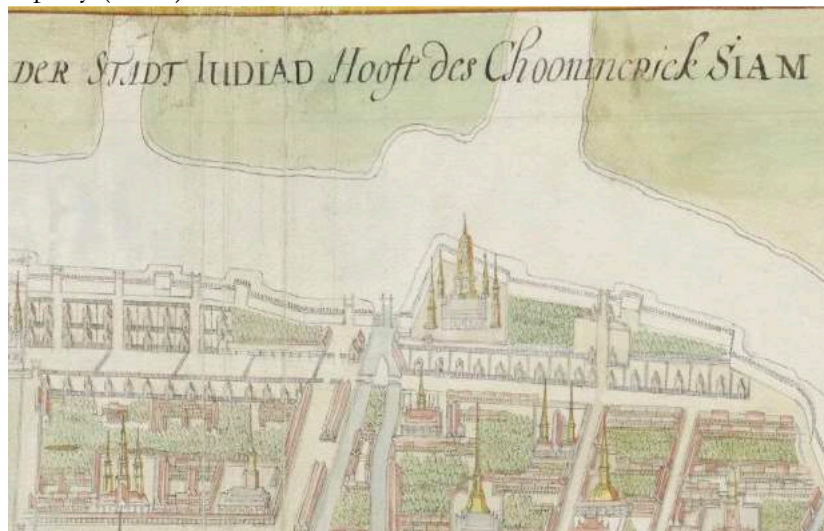 DER STADT IUDIAD Hooft des Choonincrick SIAM